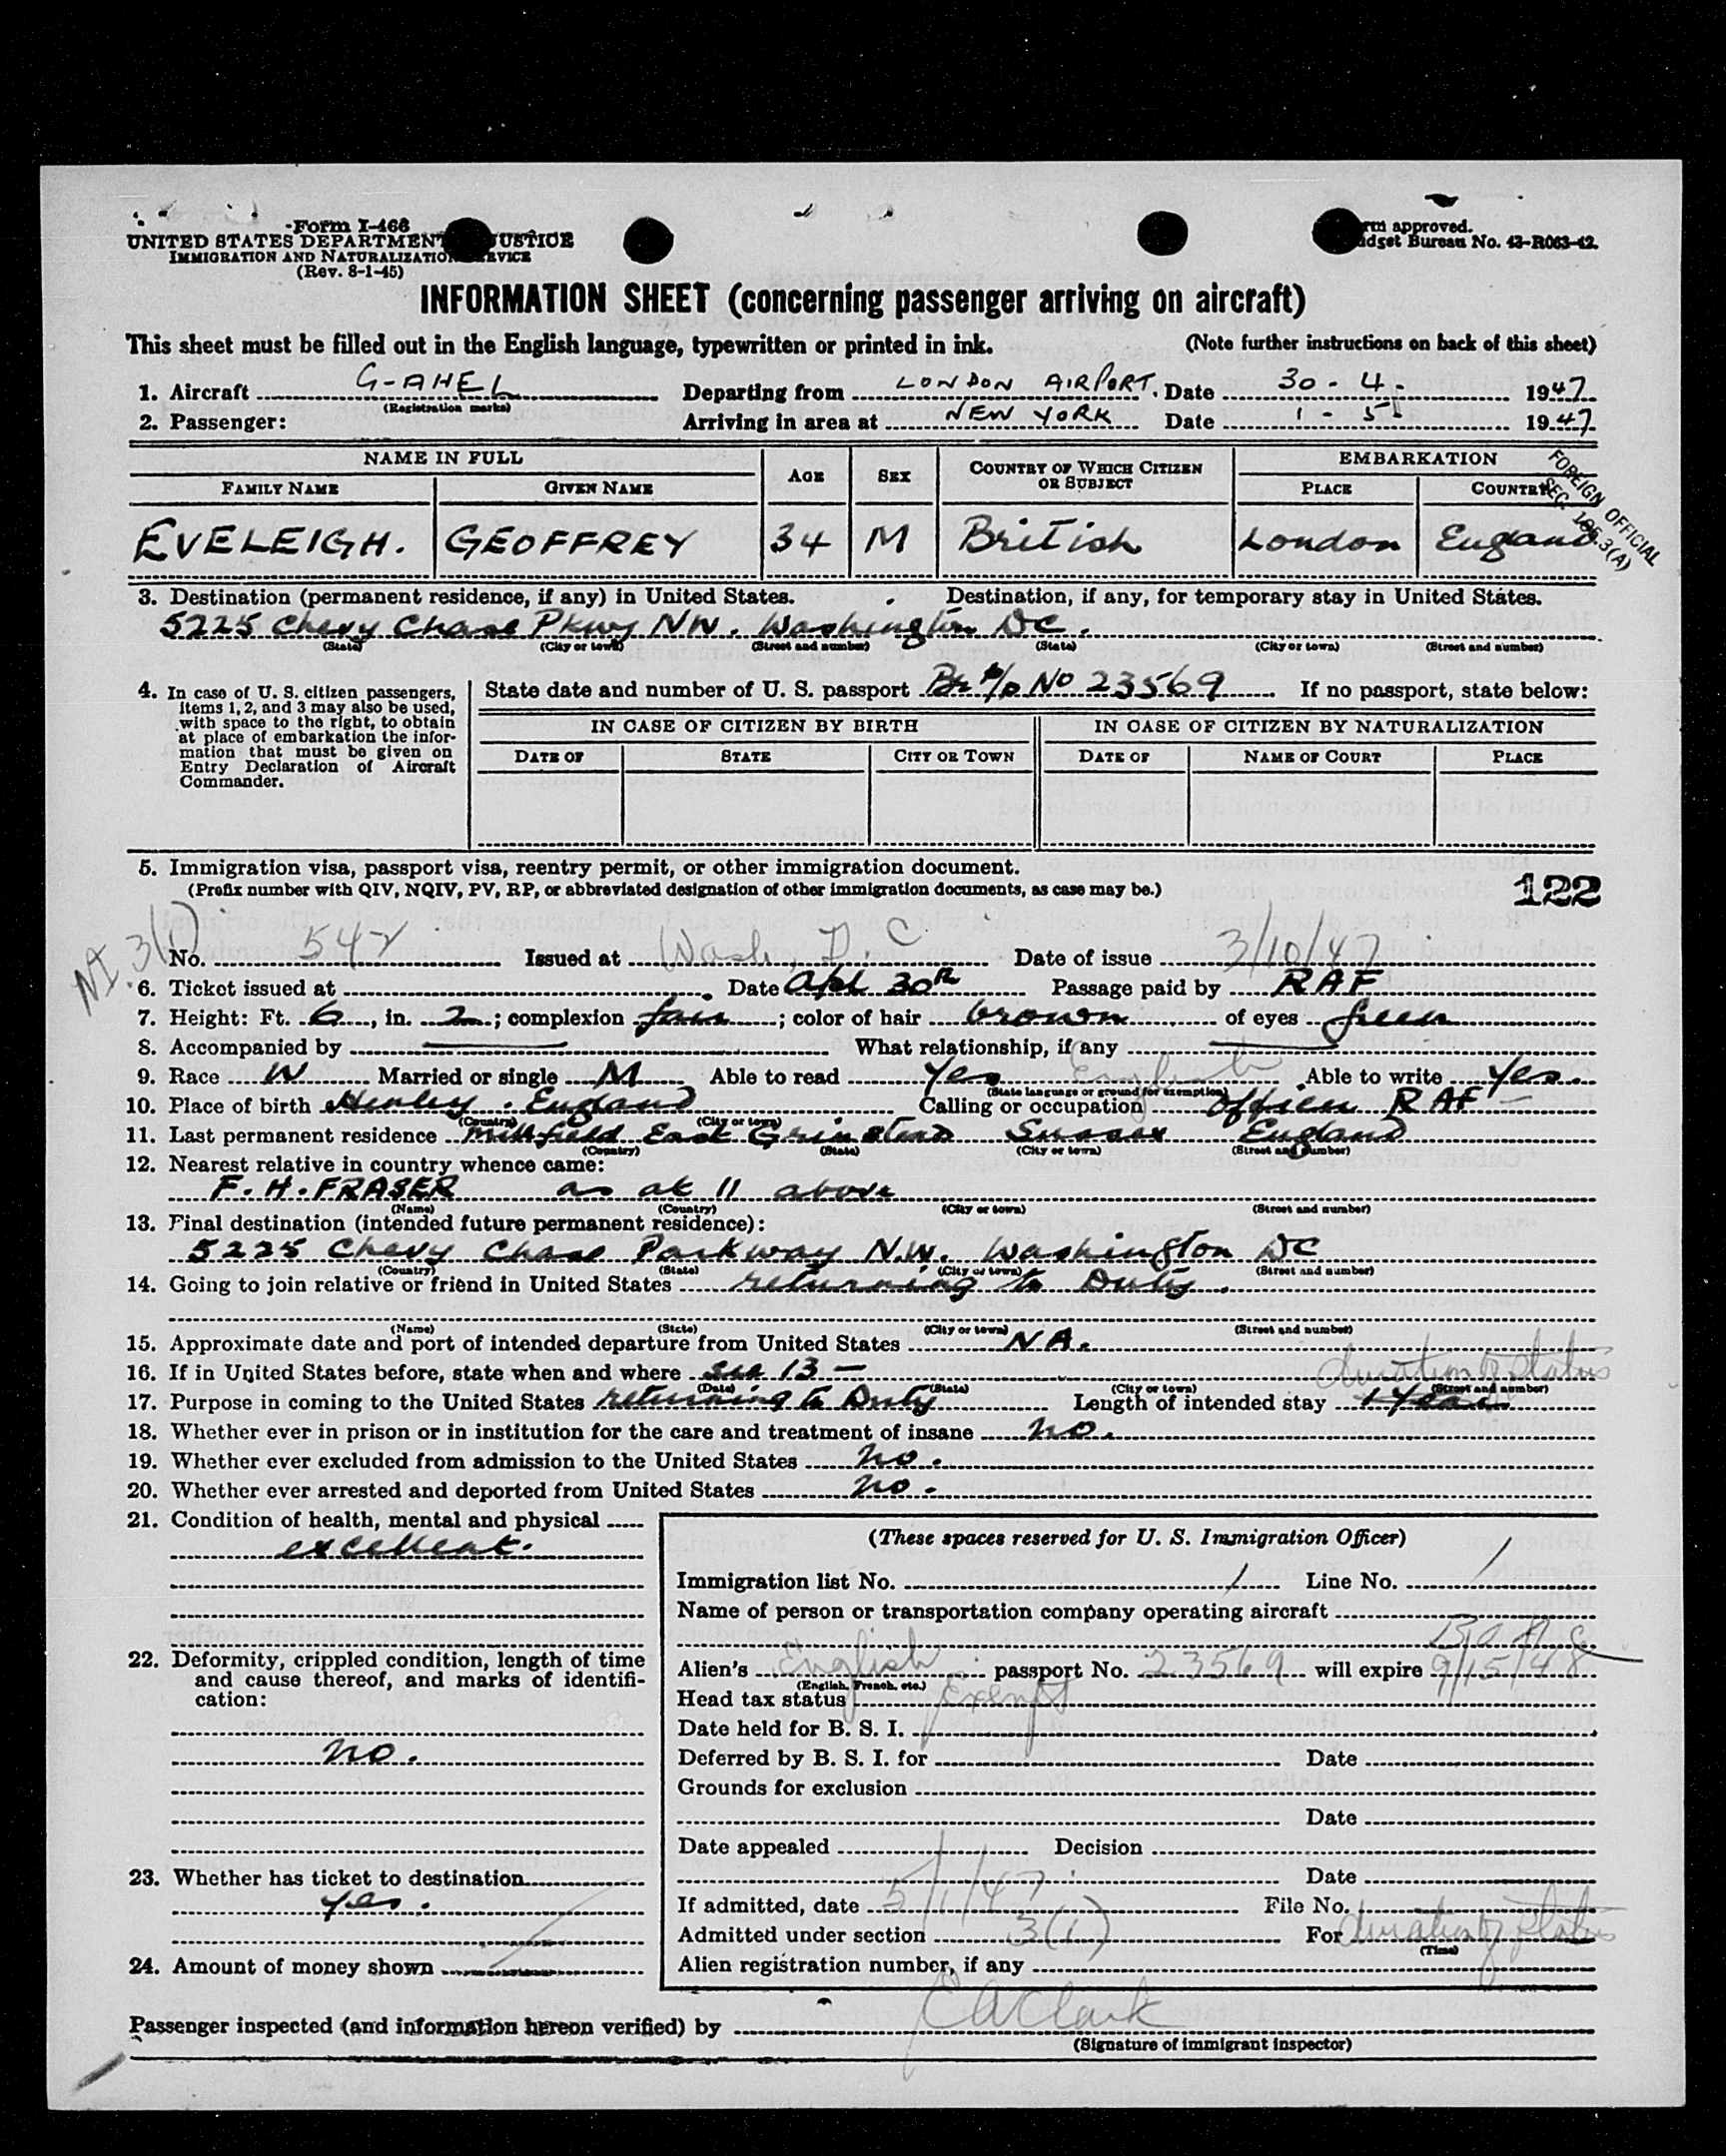 Form I-466
UNITED STATES DEPARTMENT JUSTICE
IMMIGRATION AND NATURALIZATION SERVICE
(Rev. 8-1-45)
Form approved.
Budget Bureau No. 43-R063-42.
INFORMATION SHEET (concerning passenger arriving on aircraft)
This sheet must be filled out in the English language, typewritten or printed in ink. (Note further instructions on back of this sheet)
1. Aircraft G-AHEL Departing from LONDON AIRPORT. Date 30-4- 1947
(Registration marks)
2. Passenger: Arriving in area at NEW YORK Date 1-5- 1947
NAME IN FULL AGE SEX COUNTRY OF WHICH CITIZEN OR SUBJECT EMBARKATION
FAMILY NAME GIVEN NAME PLACE COUNTRY
FOREIGN OFFICIAL
SEC. 3(A)
EVELEIGH. GEOFFREY 34 M British London England
3. Destination (permanent residence, if any) in United States. Destination, if any, for temporary stay in United States.
5225 Chevy Chase Pkwy NW. Washington DC.
(State) (City or town) (Street and number) (State) (City or town) (Street and number)
4. In case of U. S. citizen passengers, items 1, 2, and 3 may also be used, with space to the right, to obtain at place of embarkation the information that must be given on Entry Declaration of Aircraft Commander.
State date and number of U. S. passport Br P/p No 23569 If no passport, state below:
IN CASE OF CITIZEN BY BIRTH IN CASE OF CITIZEN BY NATURALIZATION
DATE OF STATE CITY OR TOWN DATE OF NAME OF COURT PLACE
5. Immigration visa, passport visa, reentry permit, or other immigration document.
(Prefix number with QIV, NQIV, PV, RP, or abbreviated designation of other immigration documents, as case may be.)
122
NI 3(1)
No. 542 Issued at Wash, D. C. Date of issue 3/10/47
6. Ticket issued at Date Apl 30th Passage paid by RAF
7. Height: Ft. 6, in. 2; complexion fair; color of hair brown of eyes green
8. Accompanied by What relationship, if any
9. Race W Married or single M Able to read Yes English Able to write Yes.
(State language or ground for exemption)
10. Place of birth Henley. England Calling or occupation Officer RAF
(Country) (City or town)
11. Last permanent residence Millfield East Grinstead Sussex England
(Country) (State) (City or town) (Street and number)
12. Nearest relative in country whence came:
F. H. FRASER as at 11 above
(Name) (Country) (City or town) (Street and number)
13. Final destination (intended future permanent residence):
5225 Chevy Chase Parkway N.W. Washington DC
(Country) (State) (City or town) (Street and number)
14. Going to join relative or friend in United States returning to Duty.
(Name) (State) (City or town) (Street and number)
15. Approximate date and port of intended departure from United States NA.
16. If in United States before, state when and where see 13 —
duration of status
(Date) (State) (City or town) (Street and number)
17. Purpose in coming to the United States returning to Duty Length of intended stay 1 year
18. Whether ever in prison or in institution for the care and treatment of insane no.
19. Whether ever excluded from admission to the United States no.
20. Whether ever arrested and deported from United States no.
21. Condition of health, mental and physical
excellent.
22. Deformity, crippled condition, length of time and cause thereof, and marks of identification:
no.
23. Whether has ticket to destination
yes.
24. Amount of money shown
(These spaces reserved for U. S. Immigration Officer)
Immigration list No. 1 Line No. 1
Name of person or transportation company operating aircraft
Alien's English passport No. 23569 will expire 9/15/48
(English, French, etc.)
Head tax status Exempt
Date held for B. S. I.
Deferred by B. S. I. for Date
Grounds for exclusion
Date
Date appealed Decision
Date
If admitted, date 5/1/47 File No.
Admitted under section 3(1) For duration of status
(Time)
Alien registration number, if any
Passenger inspected (and information hereon verified) by C A Clark
(Signature of immigrant inspector)